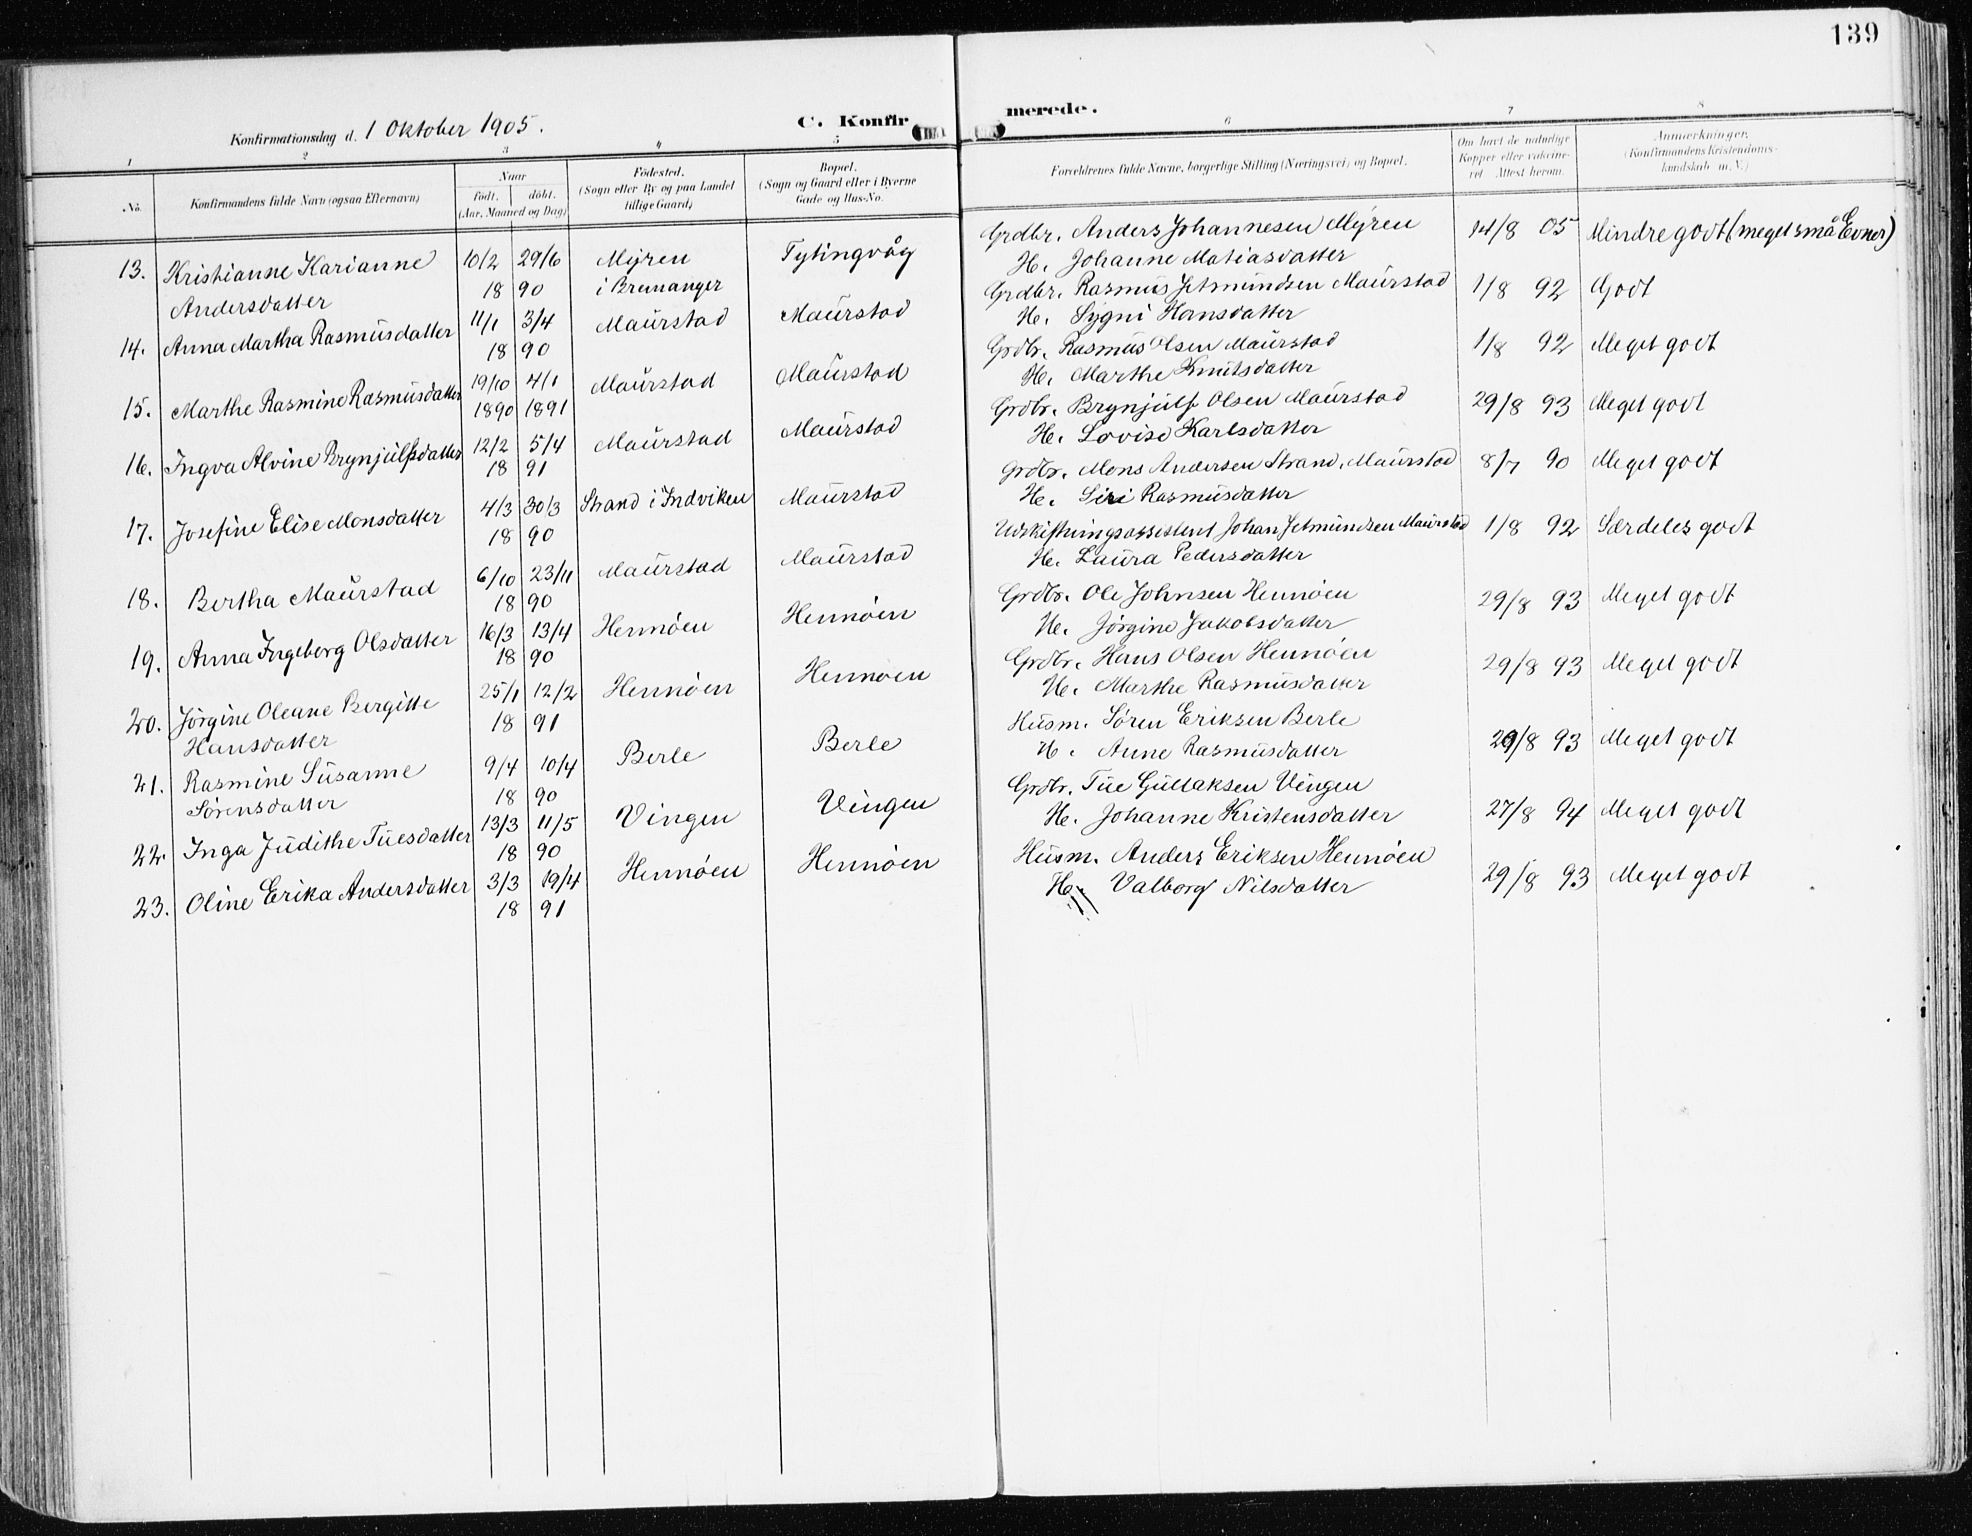 139
Konfirmationsdag d. 1 Oktober 1905.
C. Konfir
merede.
1 2 3 4 5 6 7 8
No.
Konfirmandens fulde Navn (ogsaa Efternavn)
Naar
födt. döbt.
(Aar, Maaned og Dag)
Födested.
(Sogn eller By og paa Landet
tillige Gaard)
Bopæl.
(Sogn og Gaard eller i Byerne
Gade og Hus-No.
Forældrenes fulde Navne, borgerlige Stilling (Næringsvei) og Bopæl.
Om havt de naturlige
Kopper eller vakcine-
ret. Attest herom.
Anmærkninger.
(Konfirmandens Kristendoms-
kundskab m. V.)
13. Kristianne Karianne 10/2 29/6 Myren Tytingvåg Grdbr. Anders Johannesen Myren 14/8 05 Mindre godt (meget små Evner)
Andersdatter 18 90 i Bremanger H. Johanne Matiasdatter
14. Anna Martha Rasmusdatter 11/1 3/4 Maurstad Maurstad Grdbr. Rasmus Jetmundsen Maurstad 1/8 92 Godt
18 90 H. Sygni Hansdatter
15. Marthe Rasmine Rasmusdatter 19/10 4/1 Maurstad Maurstad Grdbr. Rasmus Olsen Maurstad 1/8 92 Meget godt
1890 1891 H. Marthe Knutsdatter
16. Ingva Alvine Brynjulfsdatter 12/2 5/4 Maurstad Maurstad Grdbr. Brynjulf Olsen Maurstad 29/8 93 Meget godt
18 91 H. Lovise Karlsdatter
17. Josefine Elise Monsdatter 4/3 30/3 Strand i Indviken Maurstad Grdbr. Mons Andersen Strand, Maurstad 8/7 90 Meget godt
18 90 H. Siri Rasmusdatter
18. Bertha Maurstad 6/10 23/11 Maurstad Maurstad Udskiftningsassistent Johan Jetmundsen Maurstad 1/8 92 Særdeles godt
18 90 H. Laura Pedersdatter
19. Anna Ingeborg Olsdatter 16/3 13/4 Hennöen Hennöen Grdbr. Ole Johnsen Hennöen 29/8 93 Meget godt
18 90 H. Jörgine Jakobsdatter
20. Jörgine Oleane Bergitte 25/1 12/2 Hennöen Hennöen Grdbr. Hans Olsen Hennöen 29/8 93 Meget godt
Hansdatter 18 91 H. Marthe Rasmusdatter
21. Rasmine Susanne 9/4 10/4 Berle Berle Husm. Sören Eriksen Berle 29/8 93 Meget godt
Sörensdatter 18 90 H. Anne Rasmusdatter
22. Inga Judithe Tuesdatter 13/3 11/5 Vingen Vingen Grdbr. Tue Gullaksen Vingen 27/8 94 Meget godt
18 90 H. Johanne Kristensdatter
23. Oline Erika Andersdatter 3/3 19/4 Hennöen Hennöen Husm. Anders Eriksen Hennöen 29/8 93 Meget godt
18 91 H. Valborg Nilsdatter